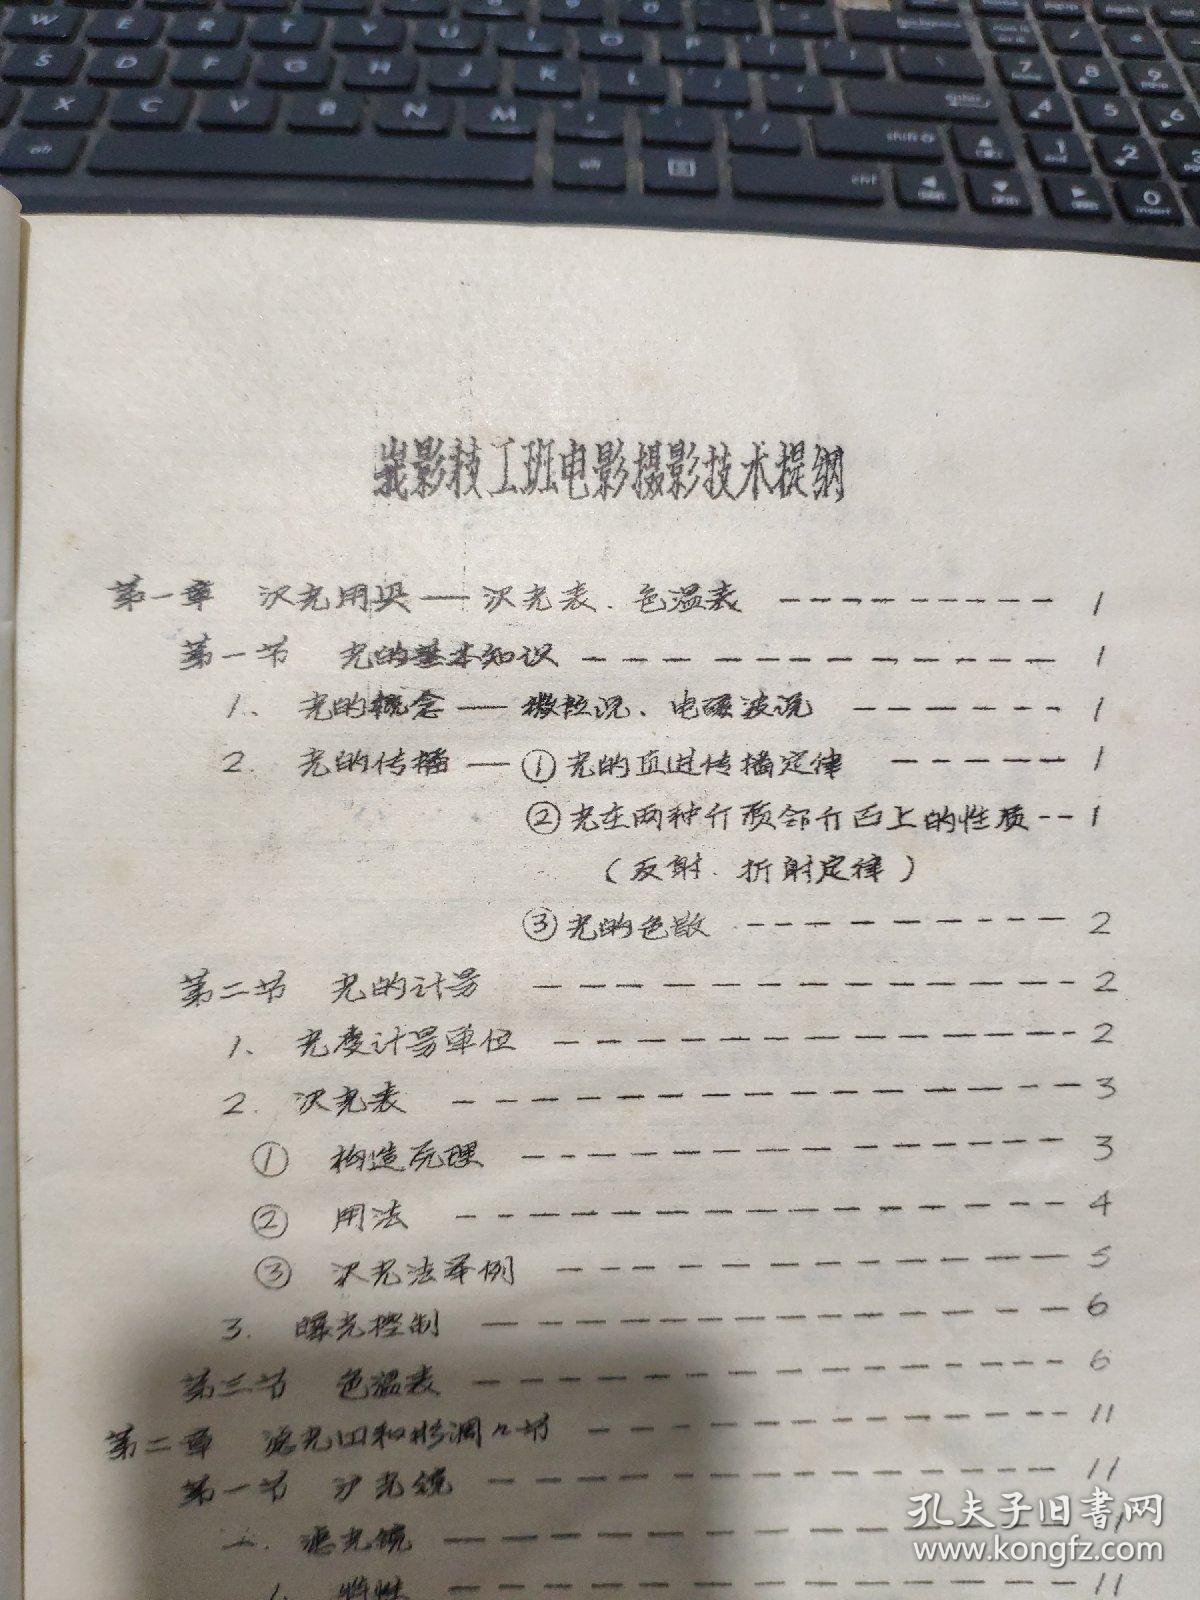 峩影技工班电影摄影技术提纲
第一章 沢光用具——沢光表、色温表 1
第一节 光的基本知识 1
1、光的概念——微粒说、电磁波说 1
2. 光的传播——①光的直进传播定律 1
②光在两种介质邻介面上的性质 1
(反射、折射定律)
③光的色散 2
第二节 光的计量 2
1、光度计量单位 2
2. 沢光表 3
① 构造原理 3
② 用法 4
③ 沢光法举例 5
3. 曝光控制 6
第三节 色温表 6
第二章 滤光口和影调々节 11
第一节 沪光镜 11
一. 滤光镜
1. 特性 11
孔夫子旧书网
www.kongfz.com